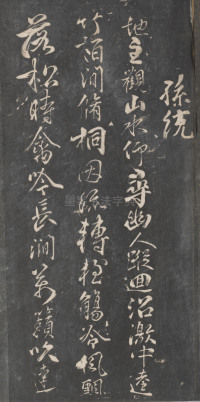 孫統
地主觀山水仰尋幽人蹤迴沼激中逵
竹間修桐因流轉輕觴冷風飄
落松時禽吟長澗萬籟吹連